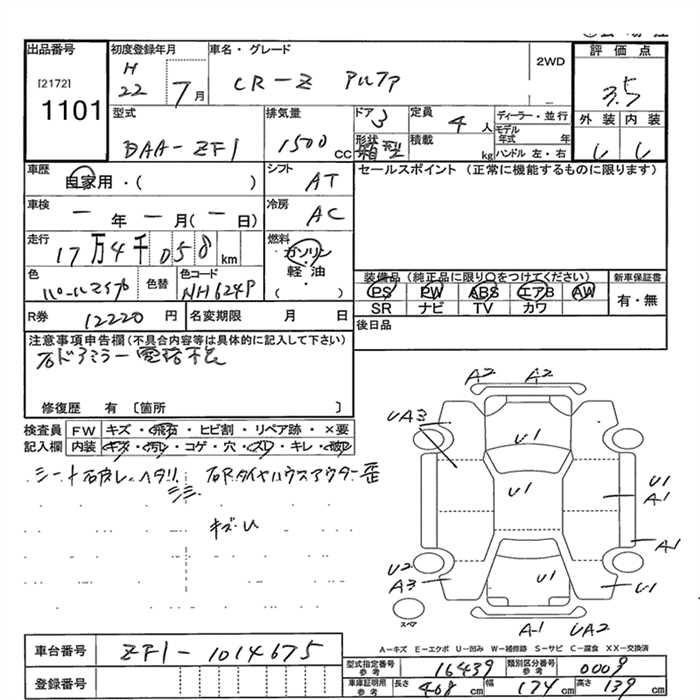 出品番号
[2172]
1101
初度登録年月
H
22 7月
車名・グレード
CR-Z アルファ
2WD
評価点
3.5
外装 内装
型式
DAA-ZF1
排気量
1500 CC
ドア 3
形状 箱型
定員 4人
積載 kg
ディーラー・並行
モデル年式 年
ハンドル 左・右
車歴
自家用・( )
シフト AT
セールスポイント (正常に機能するものに限ります)
車検
— 年 — 月(— 日)
冷房 AC
走行
17万4千058km
燃料
ガソリン
軽油
( )
色
パールマイカ
色替
色コード
NH624P
装備品 (純正品に限り○をつけてください)
PS PW ABS エアB AW
SR ナビ TV カワ
新車保証書
有・無
R券 12220円
名変期限 月 日
後日品
注意事項申告欄(不具合内容等は具体的に記入して下さい)
右ドアミラー電格不良
修復歴 有〔箇所 〕
検査員記入欄
FW キズ・飛石・ヒビ割・リペア跡・×要
内装 キズ・汚レ・コゲ・穴・スレ・キレ・破レ
シート右破レ、ヘタリ
右Rタイヤハウスアウター歪
キズ・U
A2 A2
UA3
U1
U1
U1
A1
A1
U2
A3
U1
U1
スペア
A-1 UA2
A-キズ E-エクボ U-凹み W-補修跡 S-サビ C-腐食 XX-交換済
車台番号 ZF1-1014675
登録番号
型式指定番号 参考 16439
類別区分番号 参考 0009
車庫証明用 参考 長さ 408 cm 幅 174 cm 高さ 139 cm